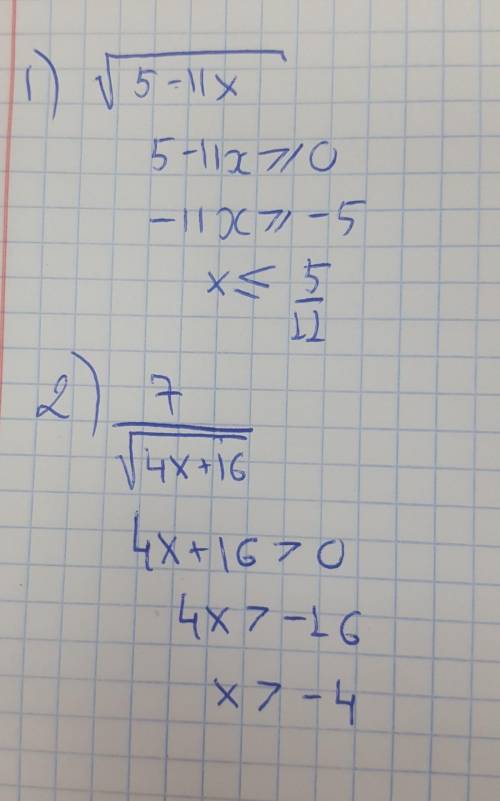 1) √(5-11x)
5-11x ⩾ 0
-11x ⩾ -5
x ≤ 5/11
2) 7/√(4x+16)
4x+16 > 0
4x > -16
x > -4